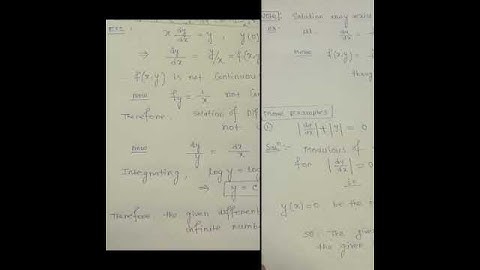 x dy/dx = y , y(0)
⇒ dy/dx = y/x = f(x,y
f(x,y) is not continuous
Now ∂f/∂y = 1/x not Con
Therefore. Solution of
not
Now dy/y = dx/x
Integrating, log y = log
⇒ y = c
Therefore the given differen
infinite numb
Note: Solution may exist
Now f(x,y) =
More Examples
① |dy/dx| + |y| = 0
Soln:- Modulus of
for |dy/dx| = 0
y(x)=0 be the
so. The give
the given